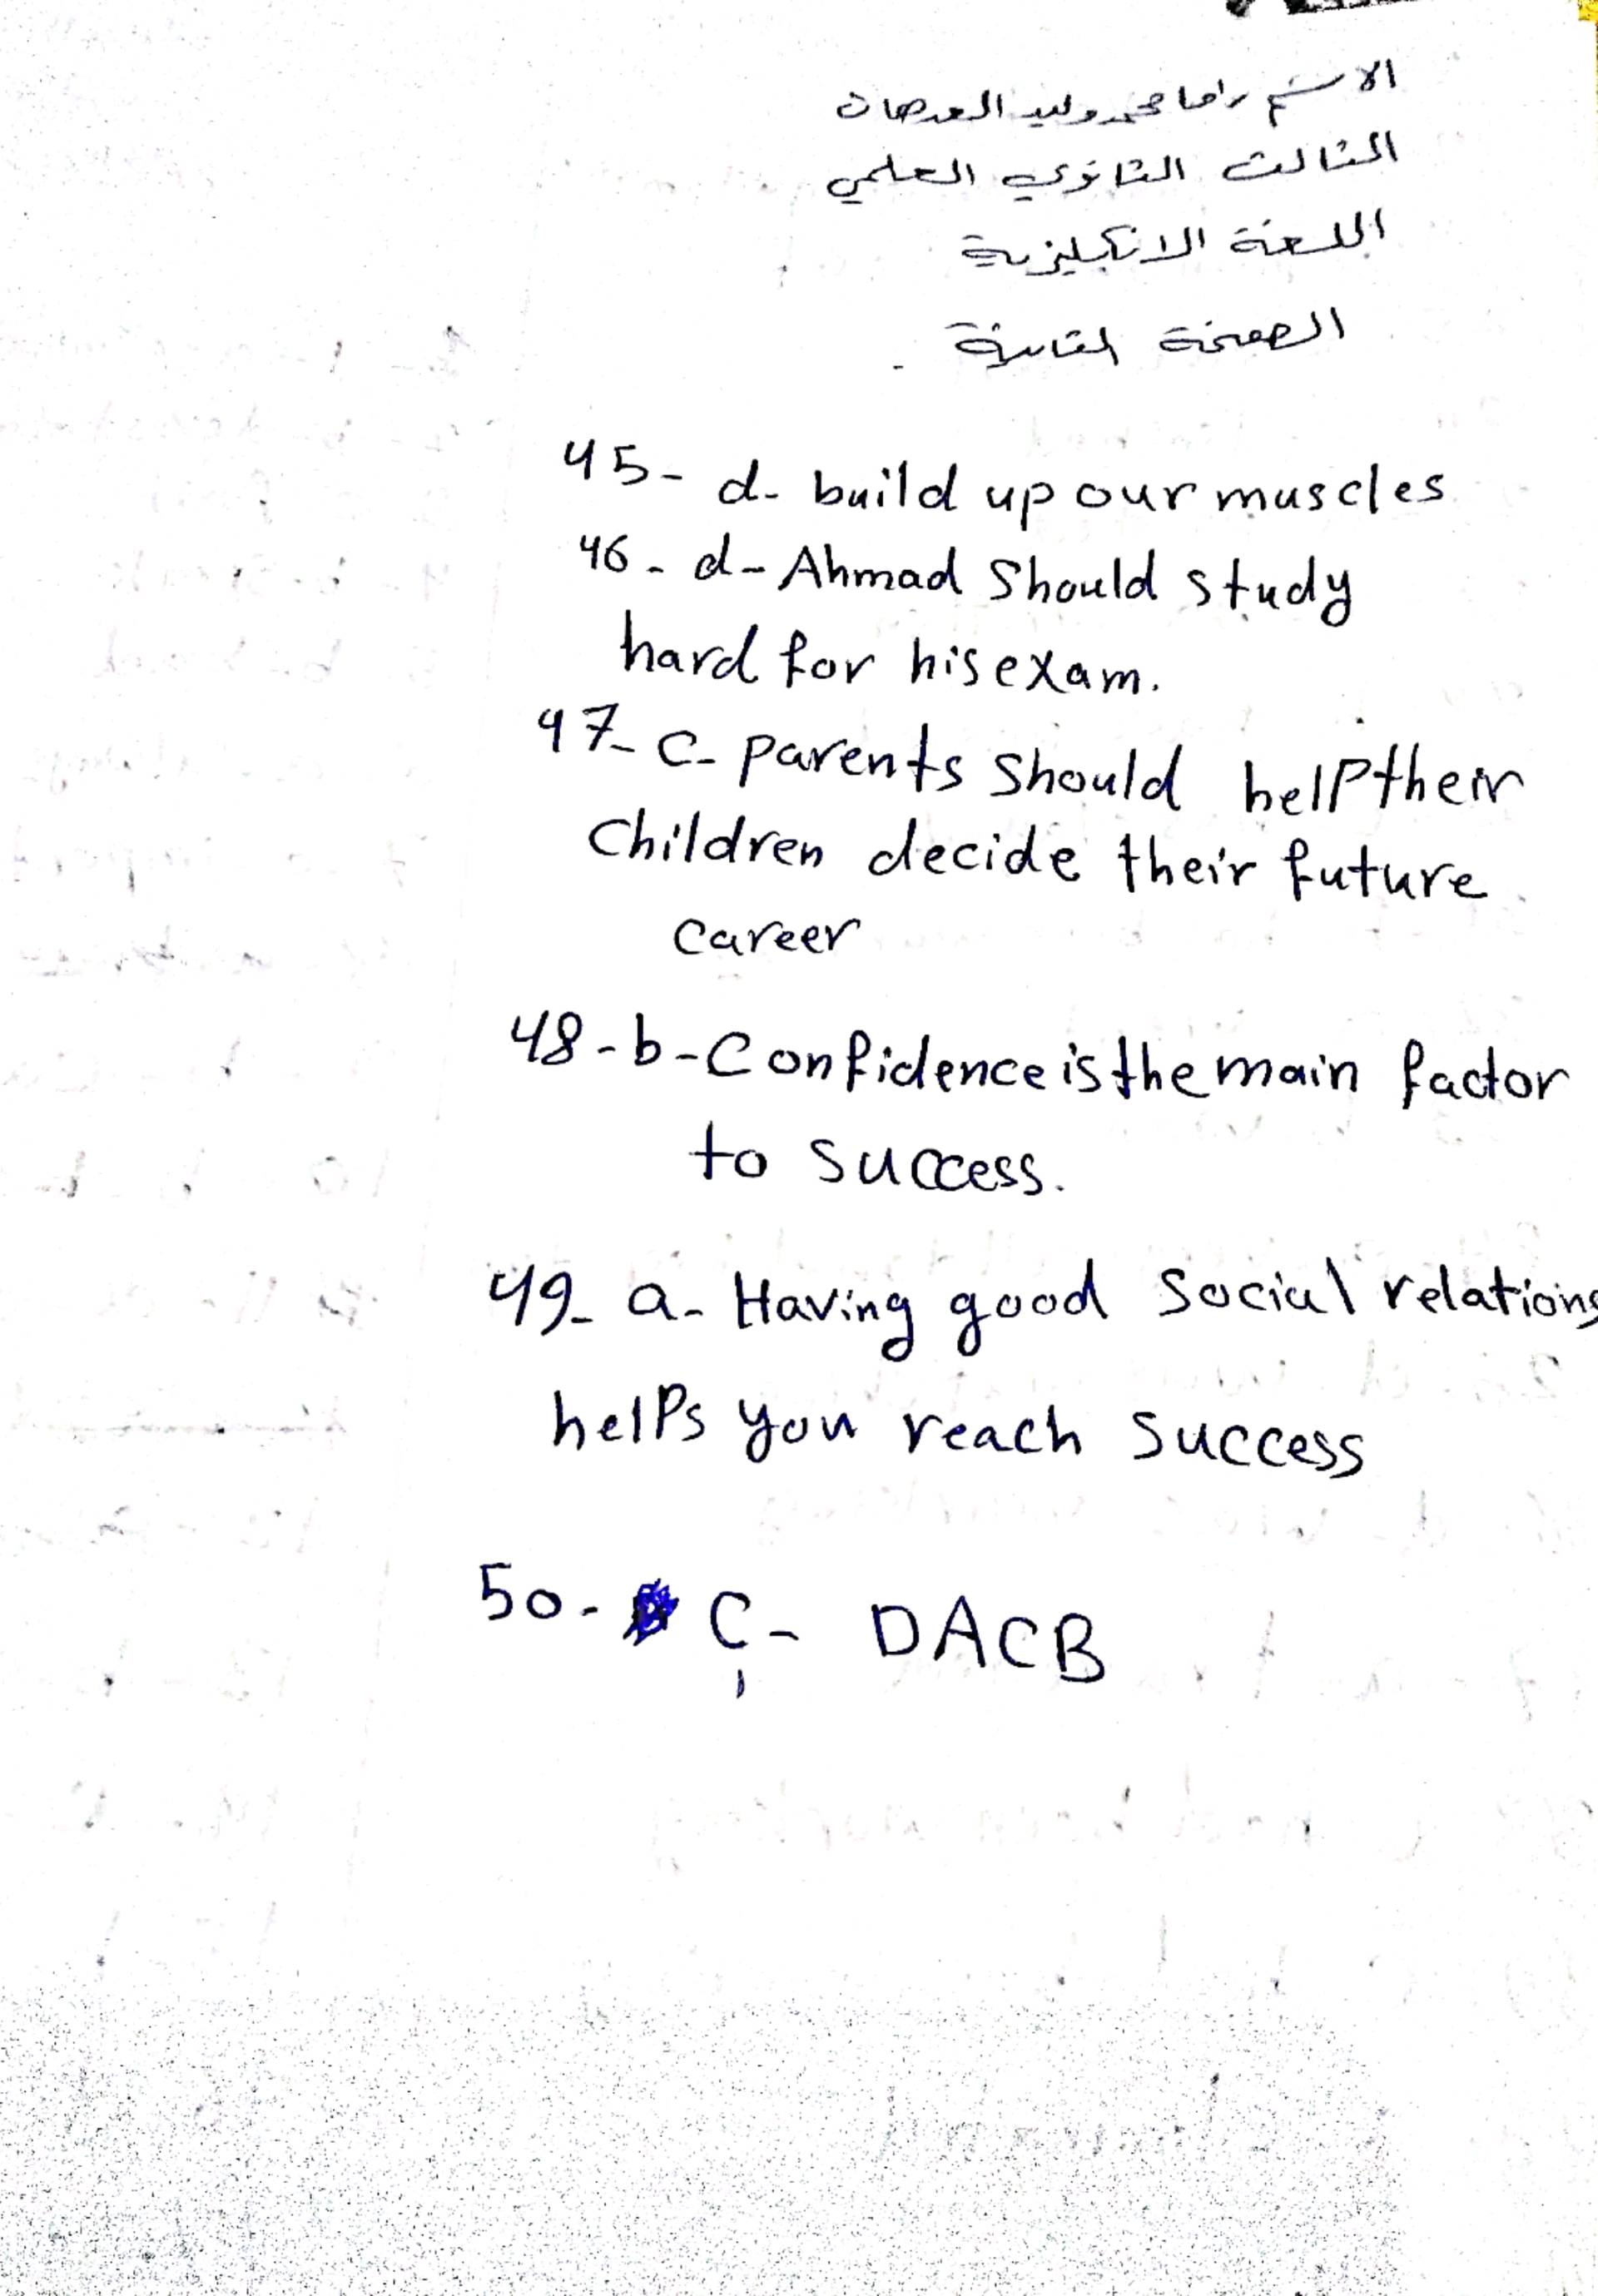 الاسم راما محمد وليد العدهان
الثالث الثانوي العلمي
اللغة الانكليزية
الصفحة الثانية
45- d- build up our muscles
46- d- Ahmad Should study
hard for his exam.
47- C- parents should help their
children decide their future
career
48- b- Confidence is the main factor
to success.
49- a- Having good social relations
helps you reach success
50- C- DACB